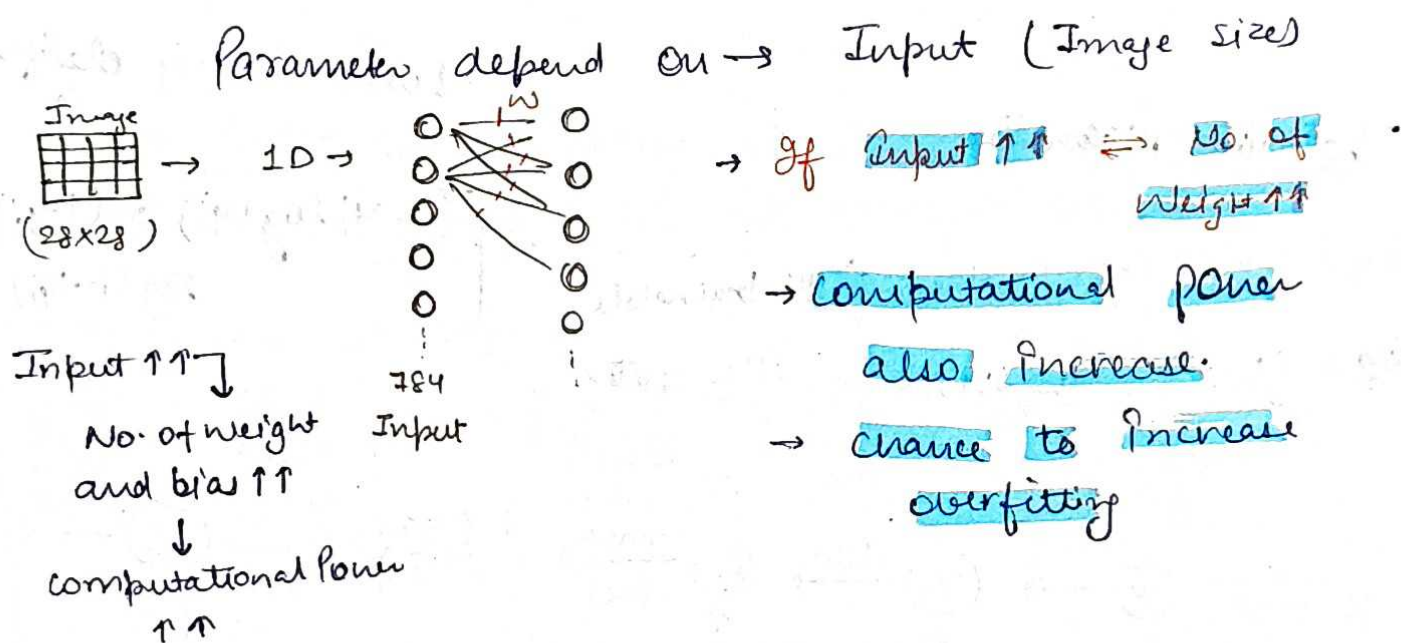 Parameter depend on → Input (Image size)
Image
(28×28)
→ 1D →
W
784
Input
Input ↑↑
No. of weight
and bias ↑↑
↓
computational Power
↑↑
→ If Input ↑↑ ⇌ No. of
Weight ↑↑
→ computational power
also increase.
→ chance to increase
overfitting